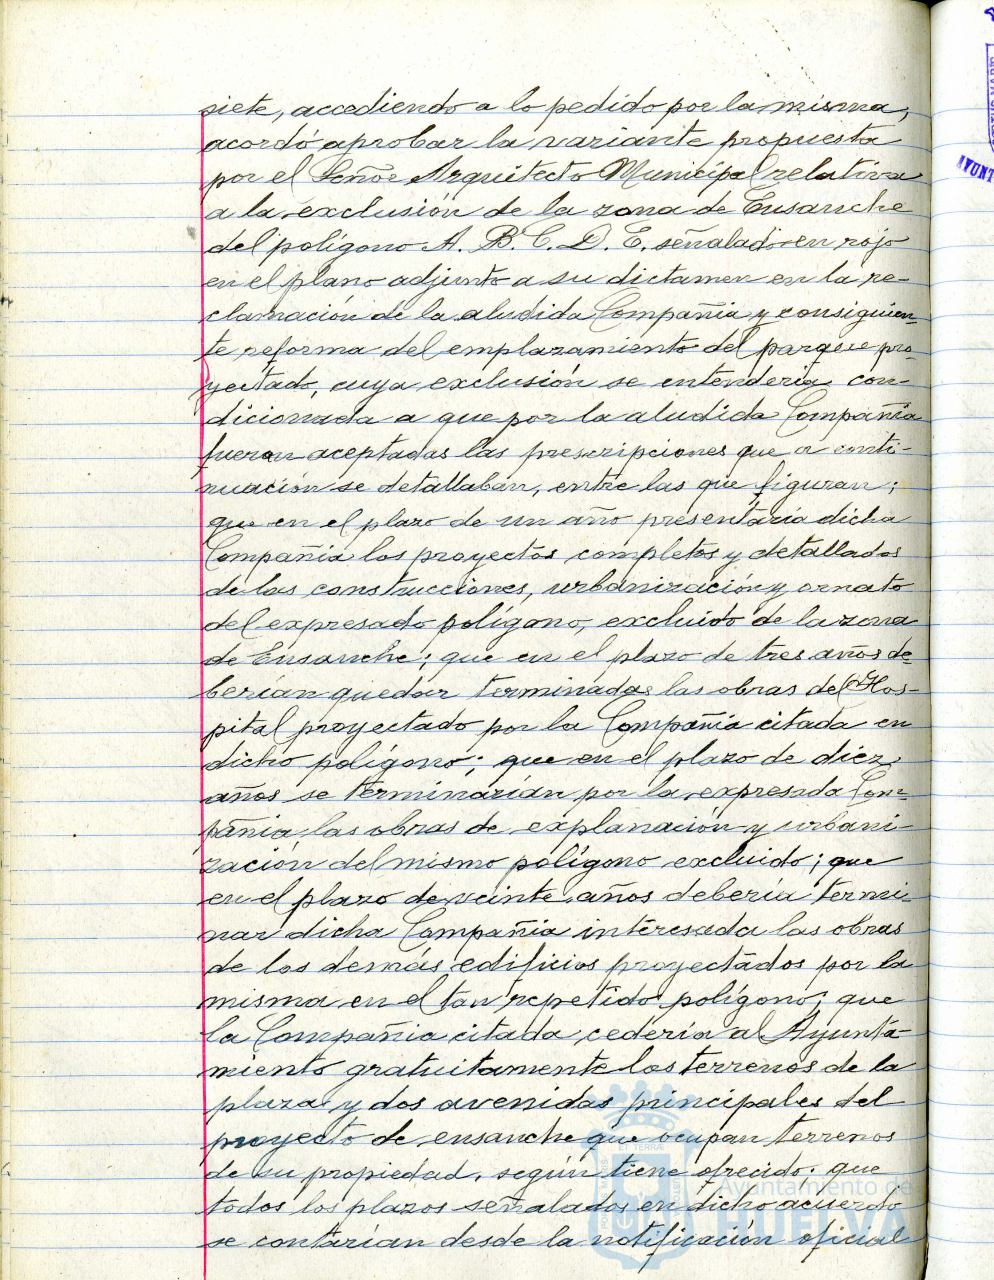 siete, accediendo a lo pedido por la misma,
acordó aprobar la variante propuesta
por el Señor Arquitecto Municipal relativa
a la exclusión de la zona de Ensanche
del polígono A. B. C. D. E. señalado en rojo
en el plano adjunto a su dictamen en la re-
clamación de la aludida Compañia y consiguien-
te reforma del emplazamiento del parque pro-
yectado, cuya exclusión se entenderia con-
dicionada a que por la aludida Compañia
fueran aceptadas las prescripciones que a conti-
nuación se detallaban, entre las que figuran;
que en el plazo de un año presentaría dicha
Compañia los proyectos completos y detallados
de las construcciones, urbanización y ornato
del expresado polígono, excluido de la zona
de Ensanche; que en el plazo de tres años de-
berían quedar terminadas las obras del Hos-
pital proyectado por la Compañia citada en
dicho polígono; que en el plazo de diez
años se terminarían por la expresada Com-
pañia las obras de explanación y urbani-
zación del mismo polígono excluido; que
en el plazo de veinte años debería termi-
nar dicha Compañia interesada las obras
de los demás edificios proyectados por la
misma en el tan repetido polígono; que
la Compañia citada cedería al Ayunta-
miento gratuitamente los terrenos de la
plaza y dos avenidas principales del
proyecto de ensanche que ocupan terrenos
de su propiedad, según tiene ofrecido; que
todos los plazos señalados en dicho acuerdo
se contarían desde la notificación oficial
Ayuntamiento de
HUELVA
AYUNT